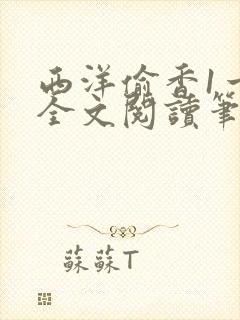 西洋偷香1一
全文閱讀筆
蘇蘇T